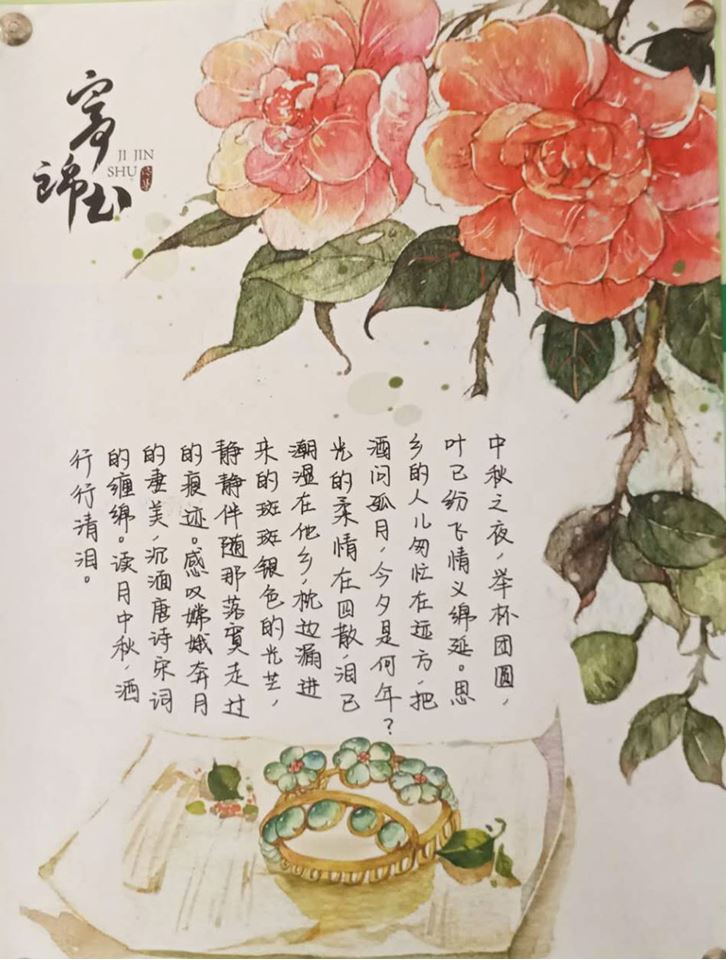 寄锦书
JI JIN
SHU
中秋之夜，举杯团圆，
叶已纷飞情义绵延。思
乡的人儿匆忙在远方，把
酒问孤月，今夕是何年？
光的柔情在四散，泪已
潮湿在他乡，枕边漏进
来的斑斑银色的光芒，
静静伴随那落寞走过
的痕迹。感叹嫦娥奔月
的凄美，沉湎唐诗宋词
的缠绵。读月中秋，洒
行行清泪。